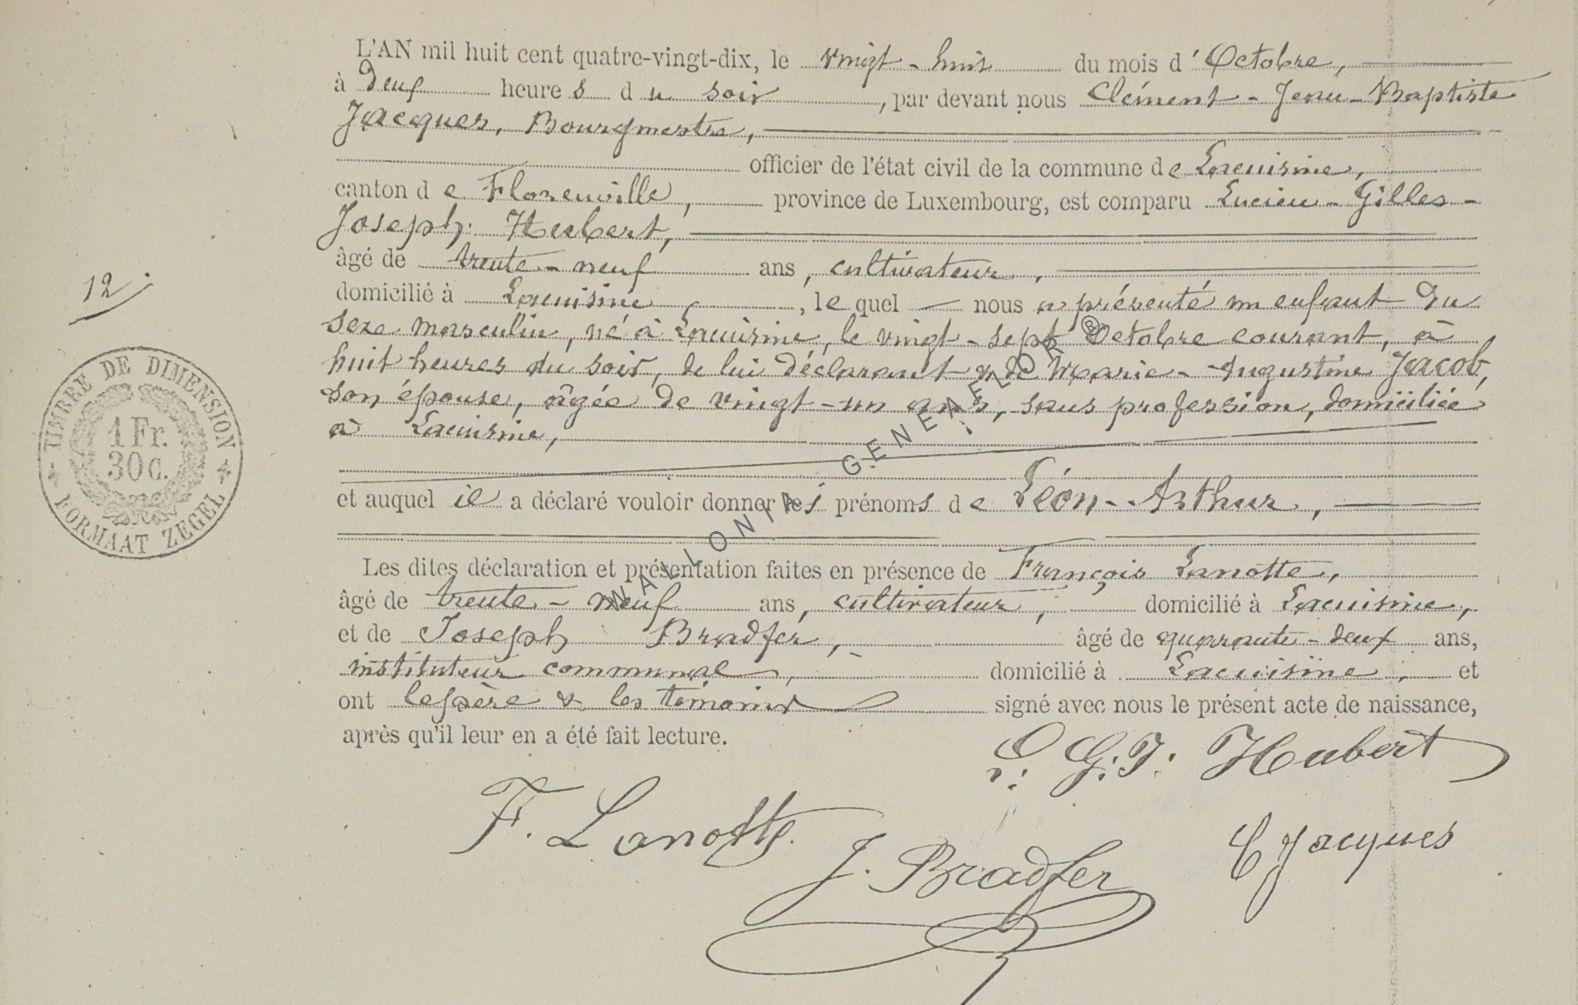 L'AN mil huit cent quatre-vingt-dix, le vingt-huit du mois d'Octobre,
à deux heures du soir, par devant nous Clément-Jean-Baptiste
Jacques, Bourgmestre,
officier de l'état civil de la commune de Lacuisine,
canton de Florenville, province de Luxembourg, est comparu Lucien-Gilles-
Joseph Hubert,
âgé de trente-neuf ans, cultivateur,
domicilié à Lacuisine, lequel nous a présenté un enfant du
12
sexe masculin, né à Lacuisine, le vingt-sept Octobre courant, à
huit heures du soir, de lui déclarant & de Marie-Augustine Jacob,
son épouse, âgée de vingt-un ans, sans profession, domiciliée
à Lacuisine,
TIMBRE DE DIMENSION
1 Fr.
30 c.
FORMAAT ZEGEL
et auquel il a déclaré vouloir donner les prénoms de Léon-Arthur,
Les dites déclaration et présentation faites en présence de François Lanotte,
âgé de trente-neuf ans, cultivateur, domicilié à Lacuisine,
et de Joseph Bradfer, âgé de quarante-deux ans,
instituteur communal, domicilié à Lacuisine, et
ont le père & les témoins signé avec nous le présent acte de naissance,
après qu'il leur en a été fait lecture.
L. G. J. Hubert
F. Lanotte.
J. Bradfer
C Jacques
WALLONIA GENEAFLOR ®